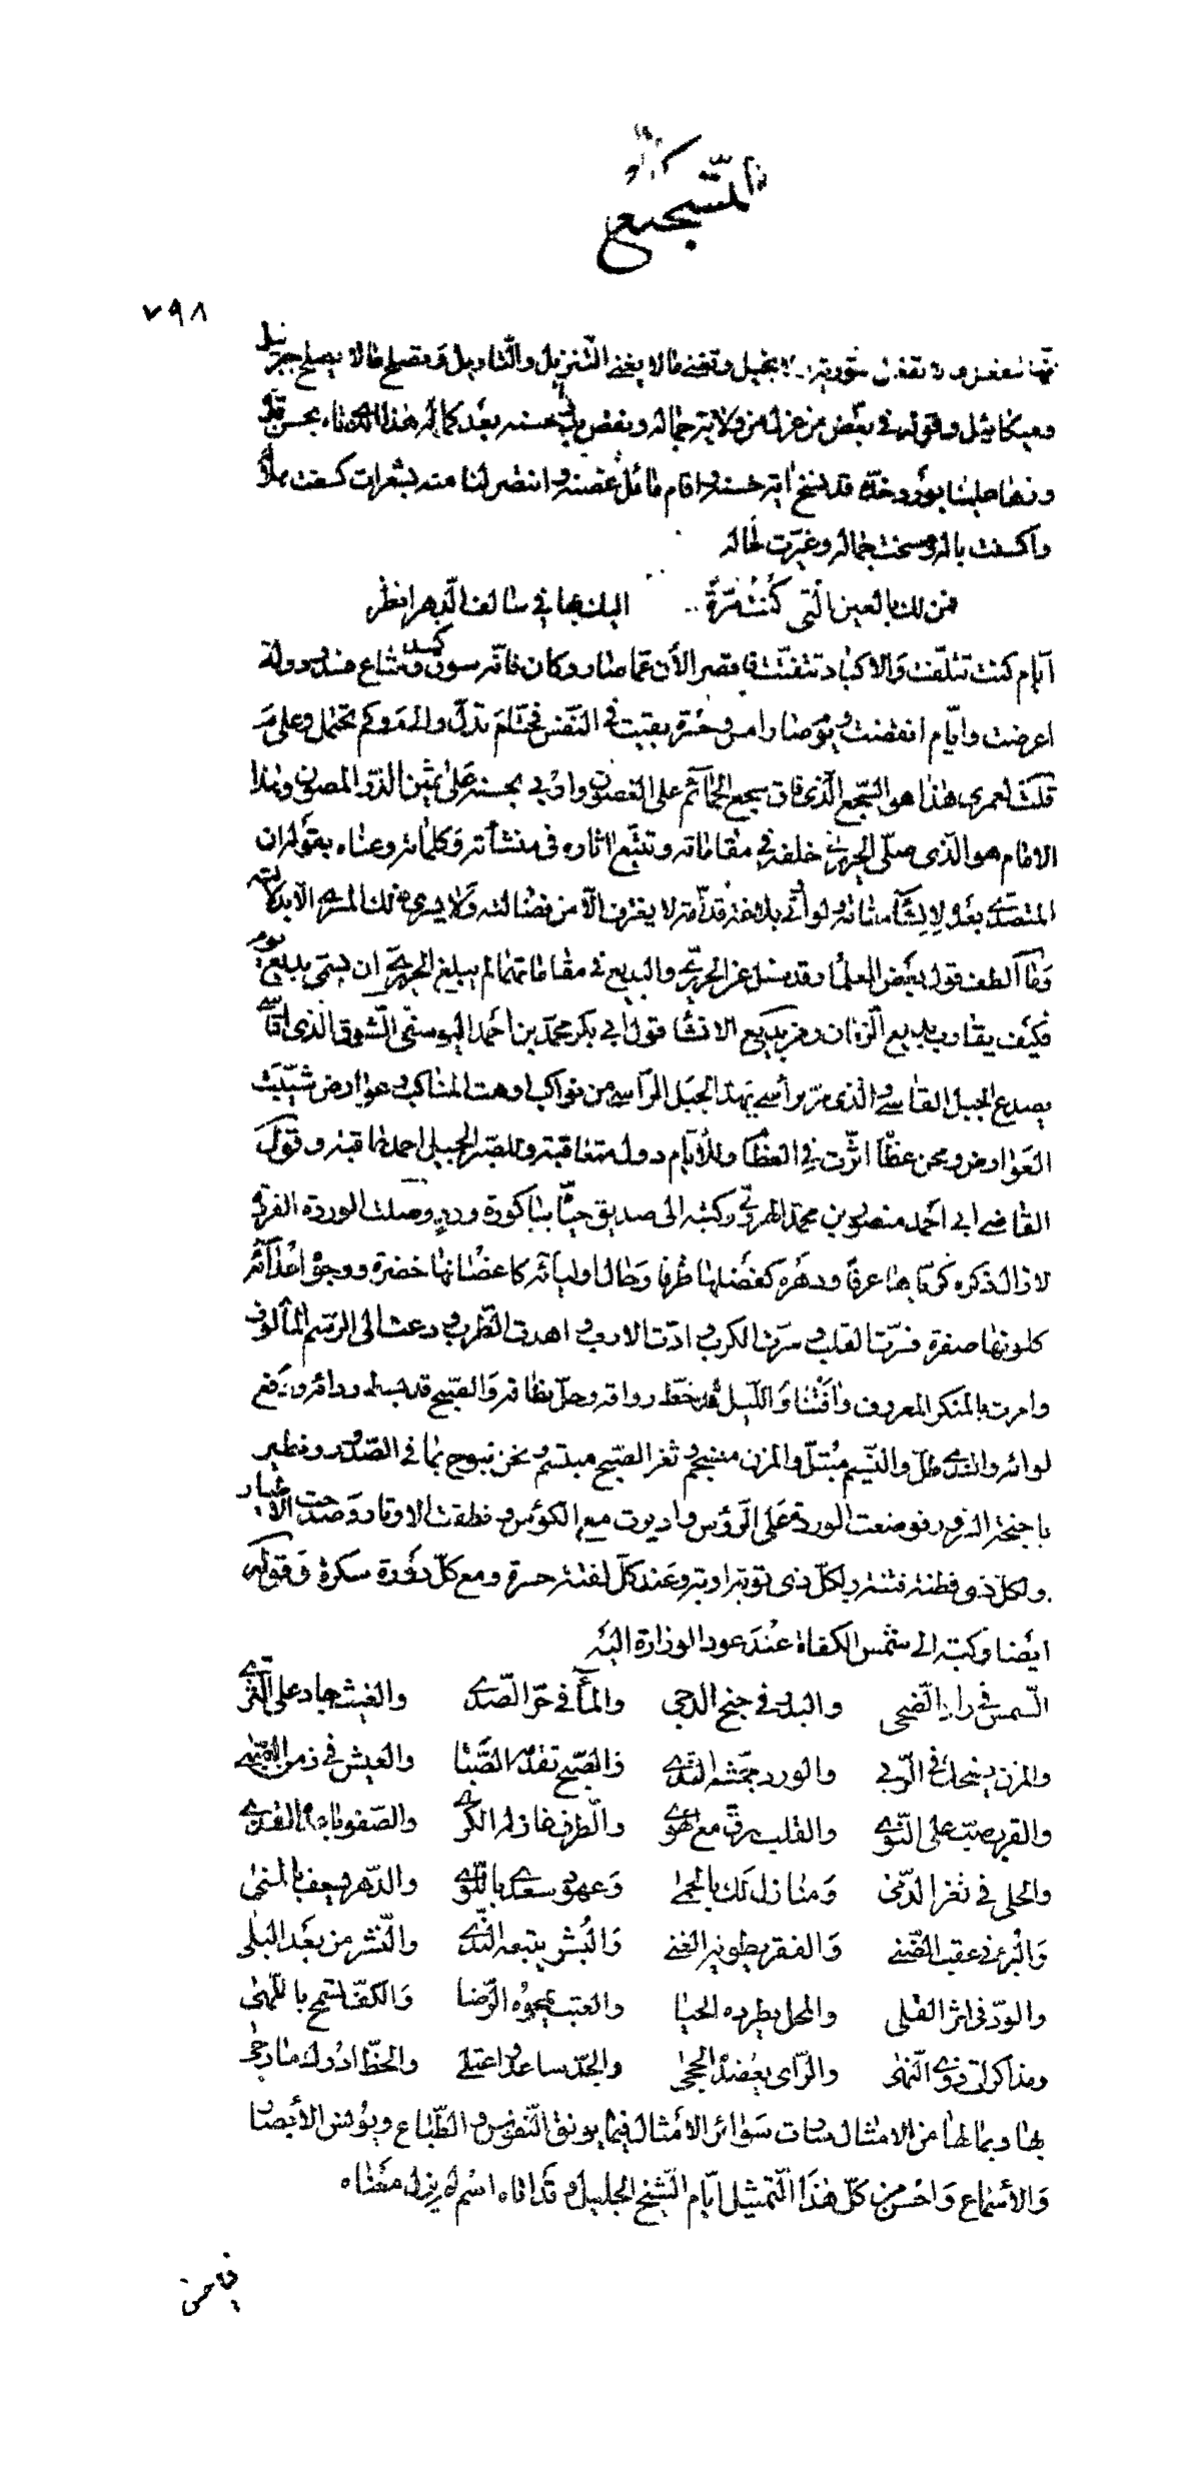 التسجيع
٧٩٨
والتأويل وتصلح مالا يصلح جبرئيل
وميكائيل وقوله في بعض من عزل من ولاية جماله ونقص حسنه بعد كماله هذا
قد نسخ اية حسنه واقام مائل غصنه وانتصر لنا منه بشعرات كسفت هلاله
واكسفت باله ومسخت جماله وغيرت حاله
فمن لك بالعين التي كنت مرة اليك بها في سالف الدهر انظر
ايام كنت تتلفت والاكباد تتفتت فاقصر الأن عما مضى وكان فانه سوق كسد ومتاع فسد ودولة
اعرضت وايام انقضت ويوم صار امس وحسرة بقيت في النفس فحتام تدل والام وكم تحتمل وعلى م
قلت لعمري هذا هو السجع الذي فاق سجع الحمائم على الغصون وازرى بحسنه على ثمين الدر المصون وهذا
الامام هو الذي صلى الحريري خلفه في مقاماته وتتبع اثاره في منشأته وكلماته وعناه بقوله ان
المتصدي بعده لانشاء مقامة ولو أتي بلاغة قدامة لا يغترف الا من فضالته ولا يسري ذلك المسرى الا بدلالته
وما ألطف قول بعض العلما وقد سئل عن الحريري والبديع في مقاماتهما لم يبلغ الحريري ان يسمى بديع يوم
فكيف يقارب بديع الزمان ومن بديع الانشا قول ابي بكر محمد بن احمد اليوسفي الشوق الذي اقاسي
يصدع الجبل القاسي والذي مر برأسي يهد الجبل الراسي من نوائب اوهت المناكب وعوارض شيبت
العوارض ومحن عظام اثرت في العظام وللأيام دول متعاقبة وللصبر الجميل احمد عاقبة وقول
القاضي ابي احمد منصور بن محمد الهروي وكتبه الى صديق حياه بباكورة ورد وصلت الوردة الفردة
لا زال ذكره كرياها عرفا ودهره كفضلها ظرفا وحال اوليائه كاغصانها خضرة ووجوه اعدائه
كلونها صفرة فسرت القلب وسرت الكرب وادت الارب واهدت الطرب ودعت الى الرسم المألوف
وامرت بالمنكر المعروف وافتنا والليل قد حط رواقه وحل نطاقه والصبح قد بسط رداءه ورفع
لواءه والندى طل والنسيم مبتل والمزن منسجم وثغر الصبح مبتسم ونحن نبوح بما في الصدور ونطير
باجنحة السرور فوضعت الوردة على الرؤس واديرت مع الكؤس ونطقت الاوتار وصدحت الاطيار
ولكل ذي فطنة فتنة ولكل ذي توبة اوبة وعند كل لفتة حسرة ومع كل دورة سكرة وقوله
ايضا وكتبه الى شمس الكفاة عند عود الوزارة اليه
الشمس في راد الضحى والبدر في جنح الدجى والماء في حر الصدى والغيث جاد على الثرى
والمزن يضحك في الربى والورد جمشه الندى والصبح تقدمه الصبا والعيش في زمن الصبى
والقرب صب على النوى والقلب رق مع الهوى والطرف غازله الكرى والصفو باعد القذى
والحلى في ثغر الدمى ومنازل لك بالحمى وعهود سعدى باللوى والدهر يسعف بالمنى
والبرء في عقب الضنى والفقر يطويه الغنى والبشر يتبعه الندى والنشر من بعد البلى
والود في اثر القلى والمحل يطرده الحيا والعتب يمحوه الرضا والكف تسمح باللهى
ومذاكراتي ذوي النهى والرأى يعضده الحجى والجد ساعد واعتلى والحظ ادرك ما رجى
بها وبمالها من الامثال سارت سوائر الأمثال فيما يونق النفوس والطباع ويؤنس الأبصار
والأسماع واحسن من كل هذا التمثيل ايام الشيخ الجليل وقد اتاه اسم لم يزل معناه